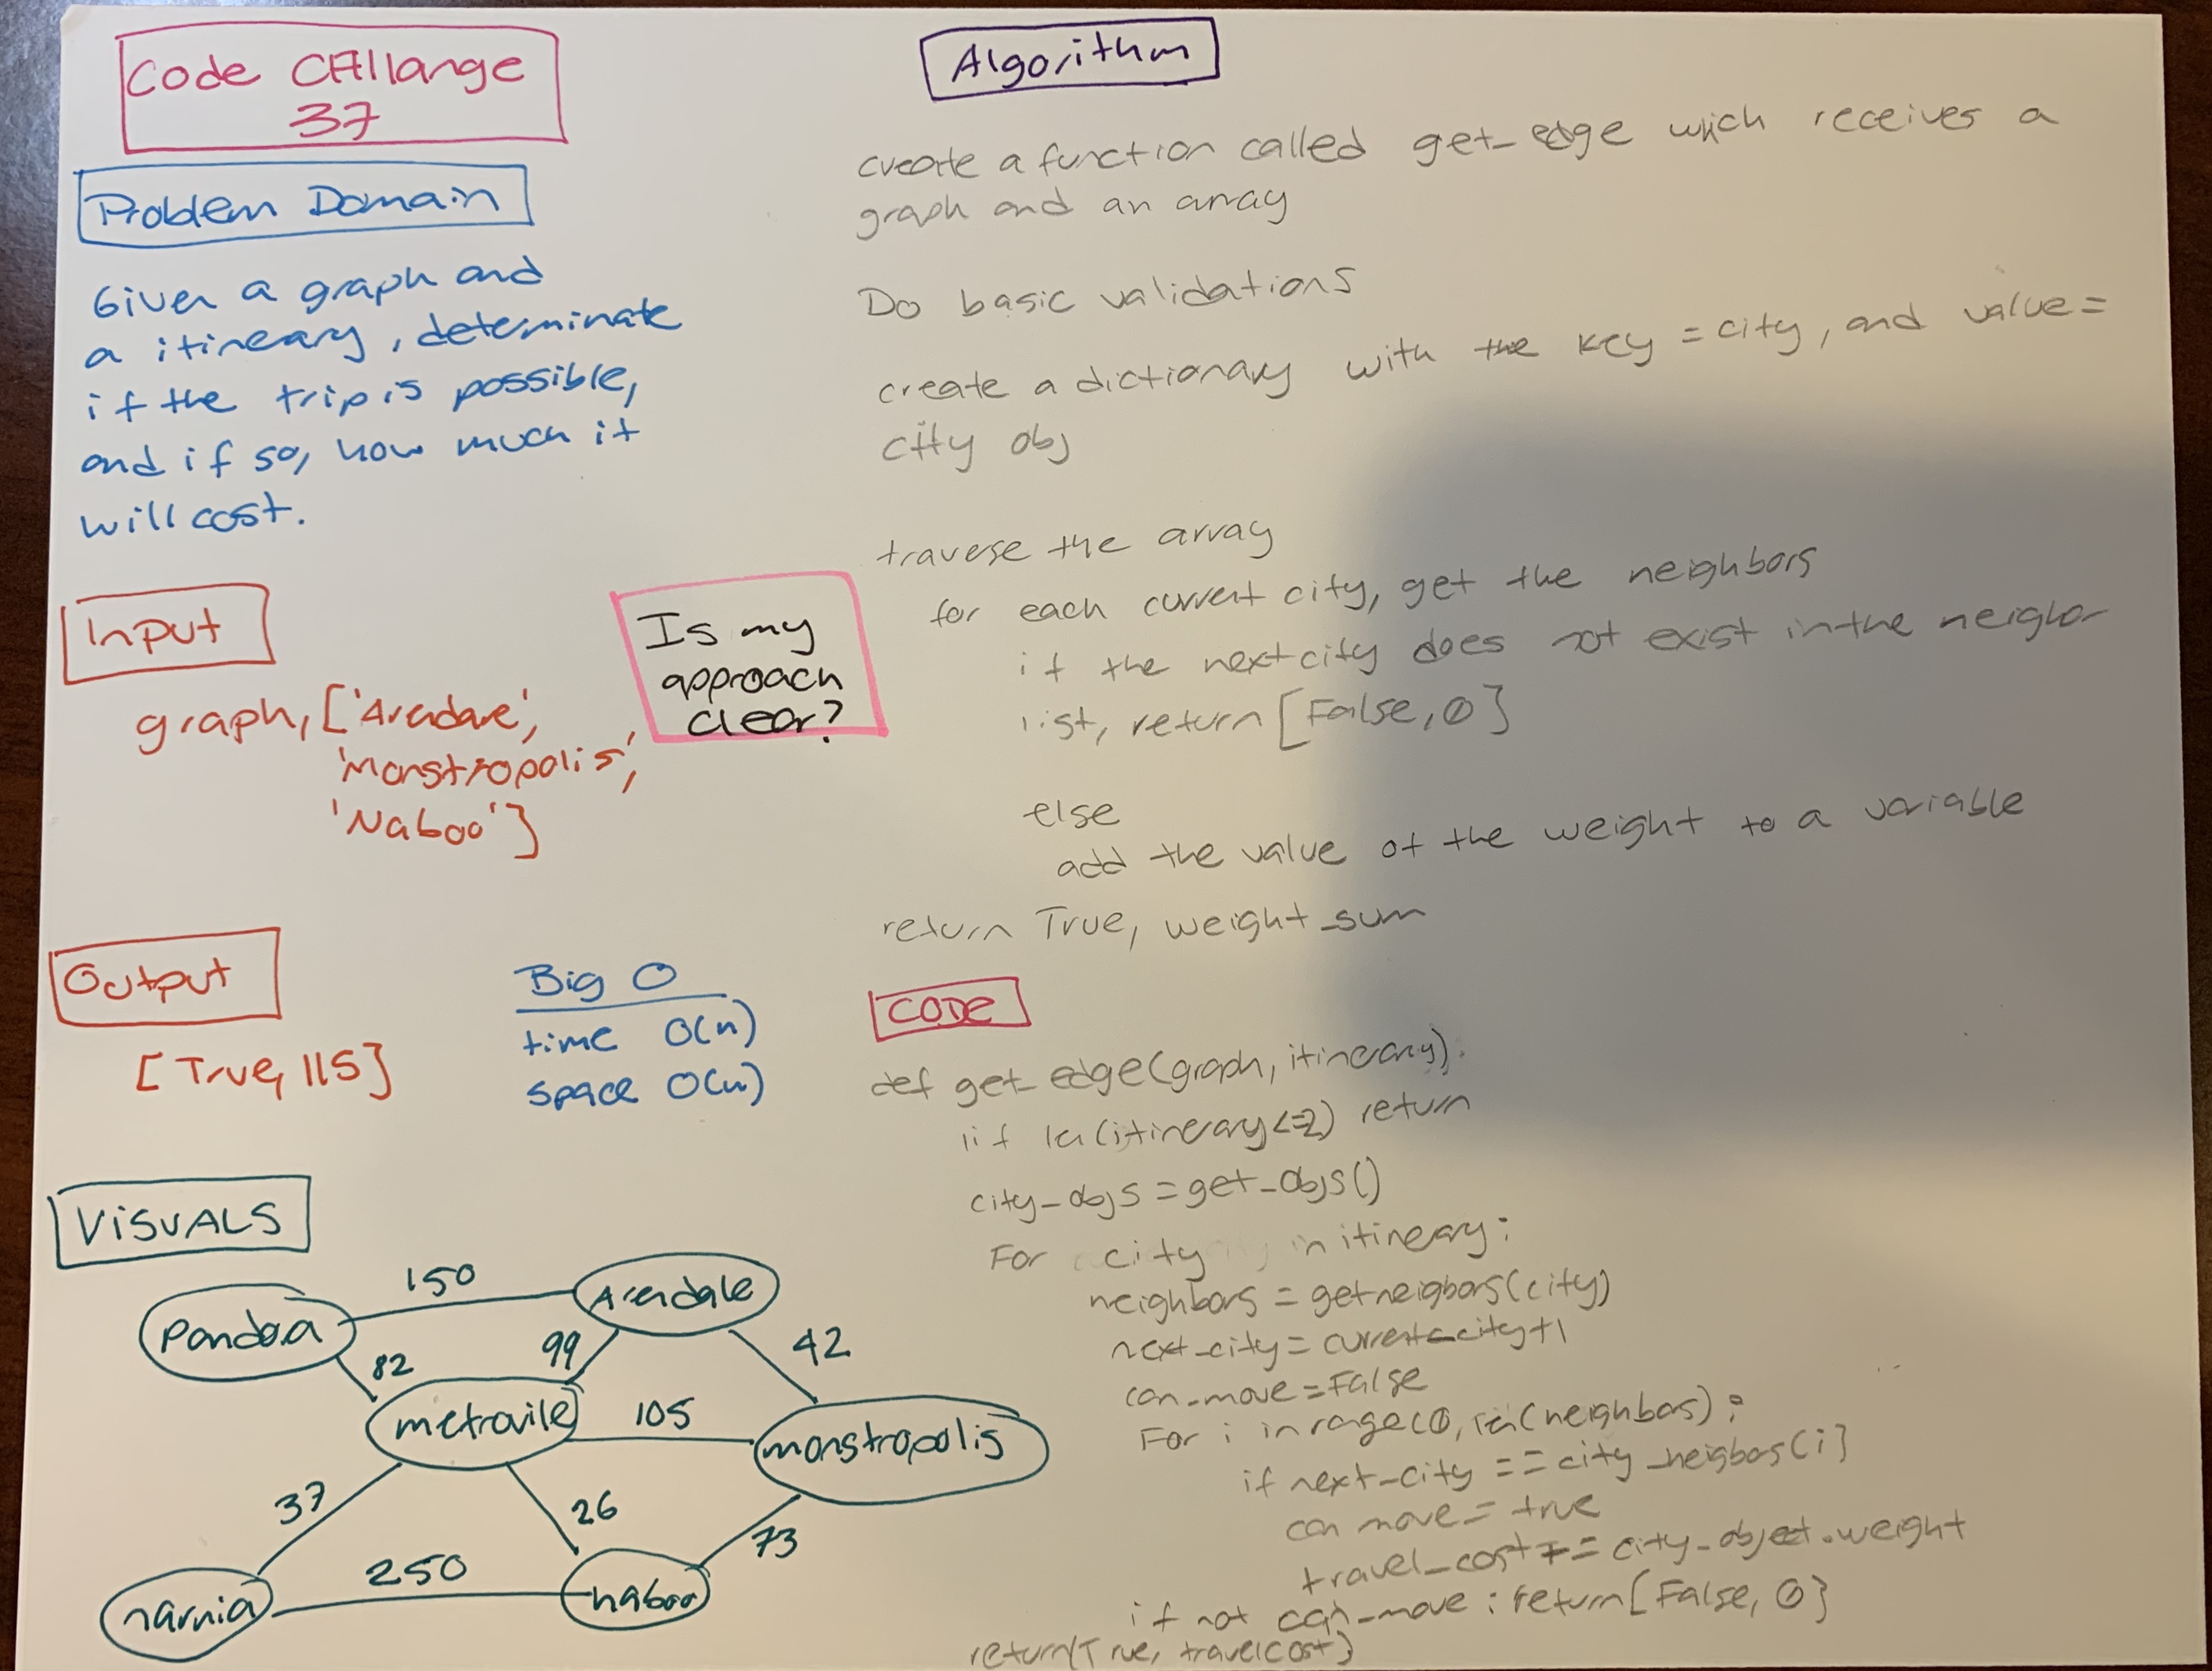 Code CHllange
37
Problem Domain
Given a graph and
a itineary, determinate
if the trip is possible,
and if so, how much it
will cost.
Input
graph, ['Arendale',
'Monstropolis',
'Naboo']
Is my
approach
clear?
Output
[True, 115]
Big O
time O(n)
space O(n)
VISUALS
Pandora
150
Arendale
82
99
42
metrovile
105
monstropolis
37
26
73
narnia
250
naboo
Algorithm
create a function called get_edge wich receives a
graph and an array
Do basic validations
create a dictionary with the key = city, and value =
city obj
traverse the array
for each current city, get the neighbors
if the next city does not exist in the neighbor
list, return [False, 0]
else
add the value of the weight to a variable
return True, weight_sum
CODE
def get_edge(graph, itineary):
if len(itineary<=2) return
city_objs = get_objs()
For city in itineary:
neighbors = getneigbors(city)
next_city = current_city+1
can_move = False
For i in range(0, len(neighbors):
if next_city == city_neigbors[i]
can move = true
travel_cost += city_object.weight
if not can_move : return [False, 0]
return [True, travelcost]